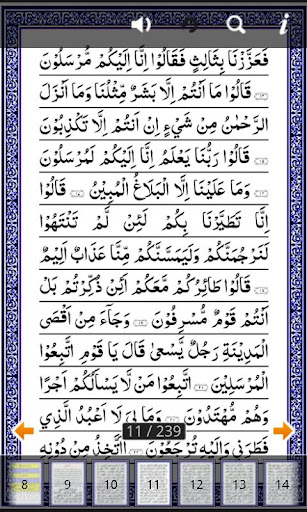 فَعَزَّزْنَا بِثَالِثٍ فَقَالُوا إِنَّا إِلَيْكُمْ مُّرْسَلُونَ
﴿١٤﴾ قَالُوا مَا أَنْتُمْ إِلَّا بَشَرٌ مِّثْلُنَا وَمَا أَنْزَلَ
الرَّحْمٰنُ مِنْ شَيْءٍ إِنْ أَنْتُمْ إِلَّا تَكْذِبُونَ
﴿١٥﴾ قَالُوا رَبُّنَا يَعْلَمُ إِنَّا إِلَيْكُمْ لَمُرْسَلُونَ
﴿١٦﴾ وَمَا عَلَيْنَا إِلَّا الْبَلَاغُ الْمُبِينُ ﴿١٧﴾ قَالُوا
إِنَّا تَطَيَّرْنَا بِكُمْ لَئِنْ لَّمْ تَنْتَهُوا
لَنَرْجُمَنَّكُمْ وَلَيَمَسَّنَّكُمْ مِّنَّا عَذَابٌ أَلِيمٌ
﴿١٨﴾ قَالُوا طَائِرُكُمْ مَّعَكُمْ أَئِنْ ذُكِّرْتُمْ بَلْ
أَنْتُمْ قَوْمٌ مُّسْرِفُونَ ﴿١٩﴾ وَجَاءَ مِنْ أَقْصَى
الْمَدِينَةِ رَجُلٌ يَّسْعَىٰ قَالَ يَا قَوْمِ اتَّبِعُوا
الْمُرْسَلِينَ ﴿٢٠﴾ اتَّبِعُوا مَنْ لَّا يَسْأَلُكُمْ أَجْرًا
وَهُمْ مُّهْتَدُونَ ﴿٢١﴾ وَمَا لِيَ لَا أَعْبُدُ الَّذِي
فَطَرَنِي وَإِلَيْهِ تُرْجَعُونَ ﴿٢٢﴾ أَأَتَّخِذُ مِنْ دُونِهِ
11 / 239
8 9 10 11 12 13 14